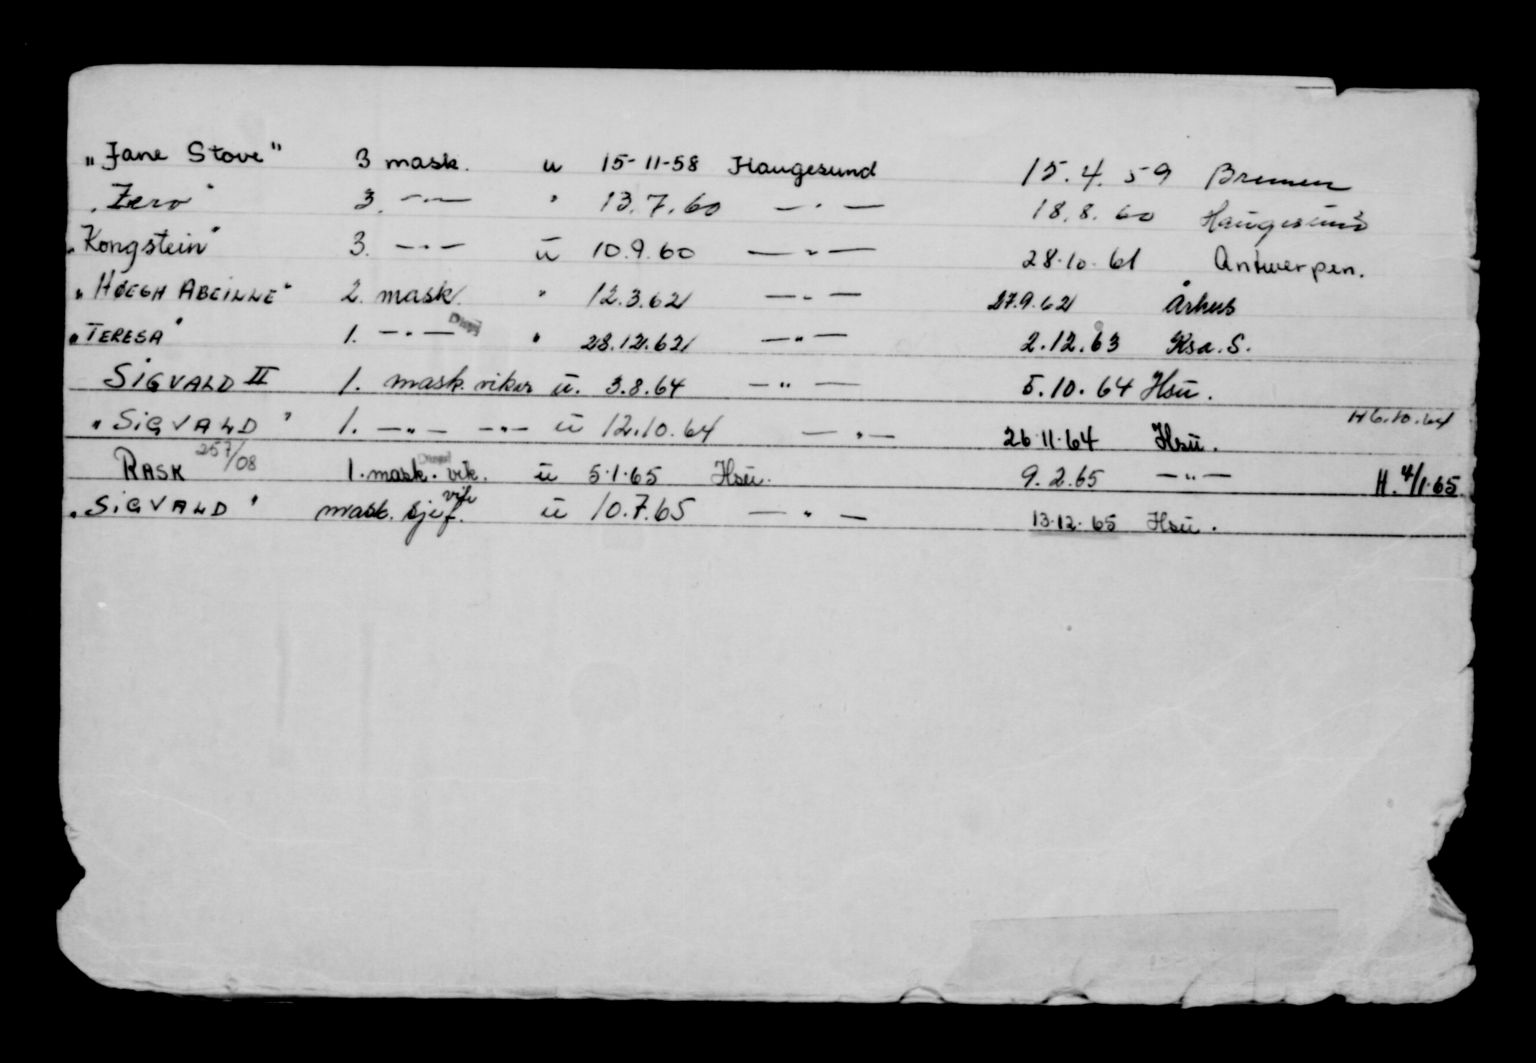 „Jane Stove" 3 mask. u 15-11-58 Haugesund 15.4.59 Bremen
„Zero" 3. —"— " 13.7.60 —"— 18.8.60 Haugesund
„Kongstein" 3. —"— ū 10.9.60 —"— 28.10.61 Antwerpen.
„HØEGH ABEILLE" 2. mask. " 12.3.62 —"— 27.9.62 Århus
„TERESA" 1. —"— Disp " 28.12.62 —"— 2.12.63 Ksa.S.
SIGVALD II 1. mask. vikar ū. 3.8.64 —"— 5.10.64 Hsū.
„SIGVALD" 1. —"— —"— ū 12.10.64 —"— 26.11.64 Hsū. H 6.10.64
RASK 257/08 1. mask. vik. ū 5.1.65 Hsū. 9.2.65 —"— H. 4/1.65.
„SIGVALD" mask. sjef. vik ū 10.7.65 —"— 13.12.65 Hsū.